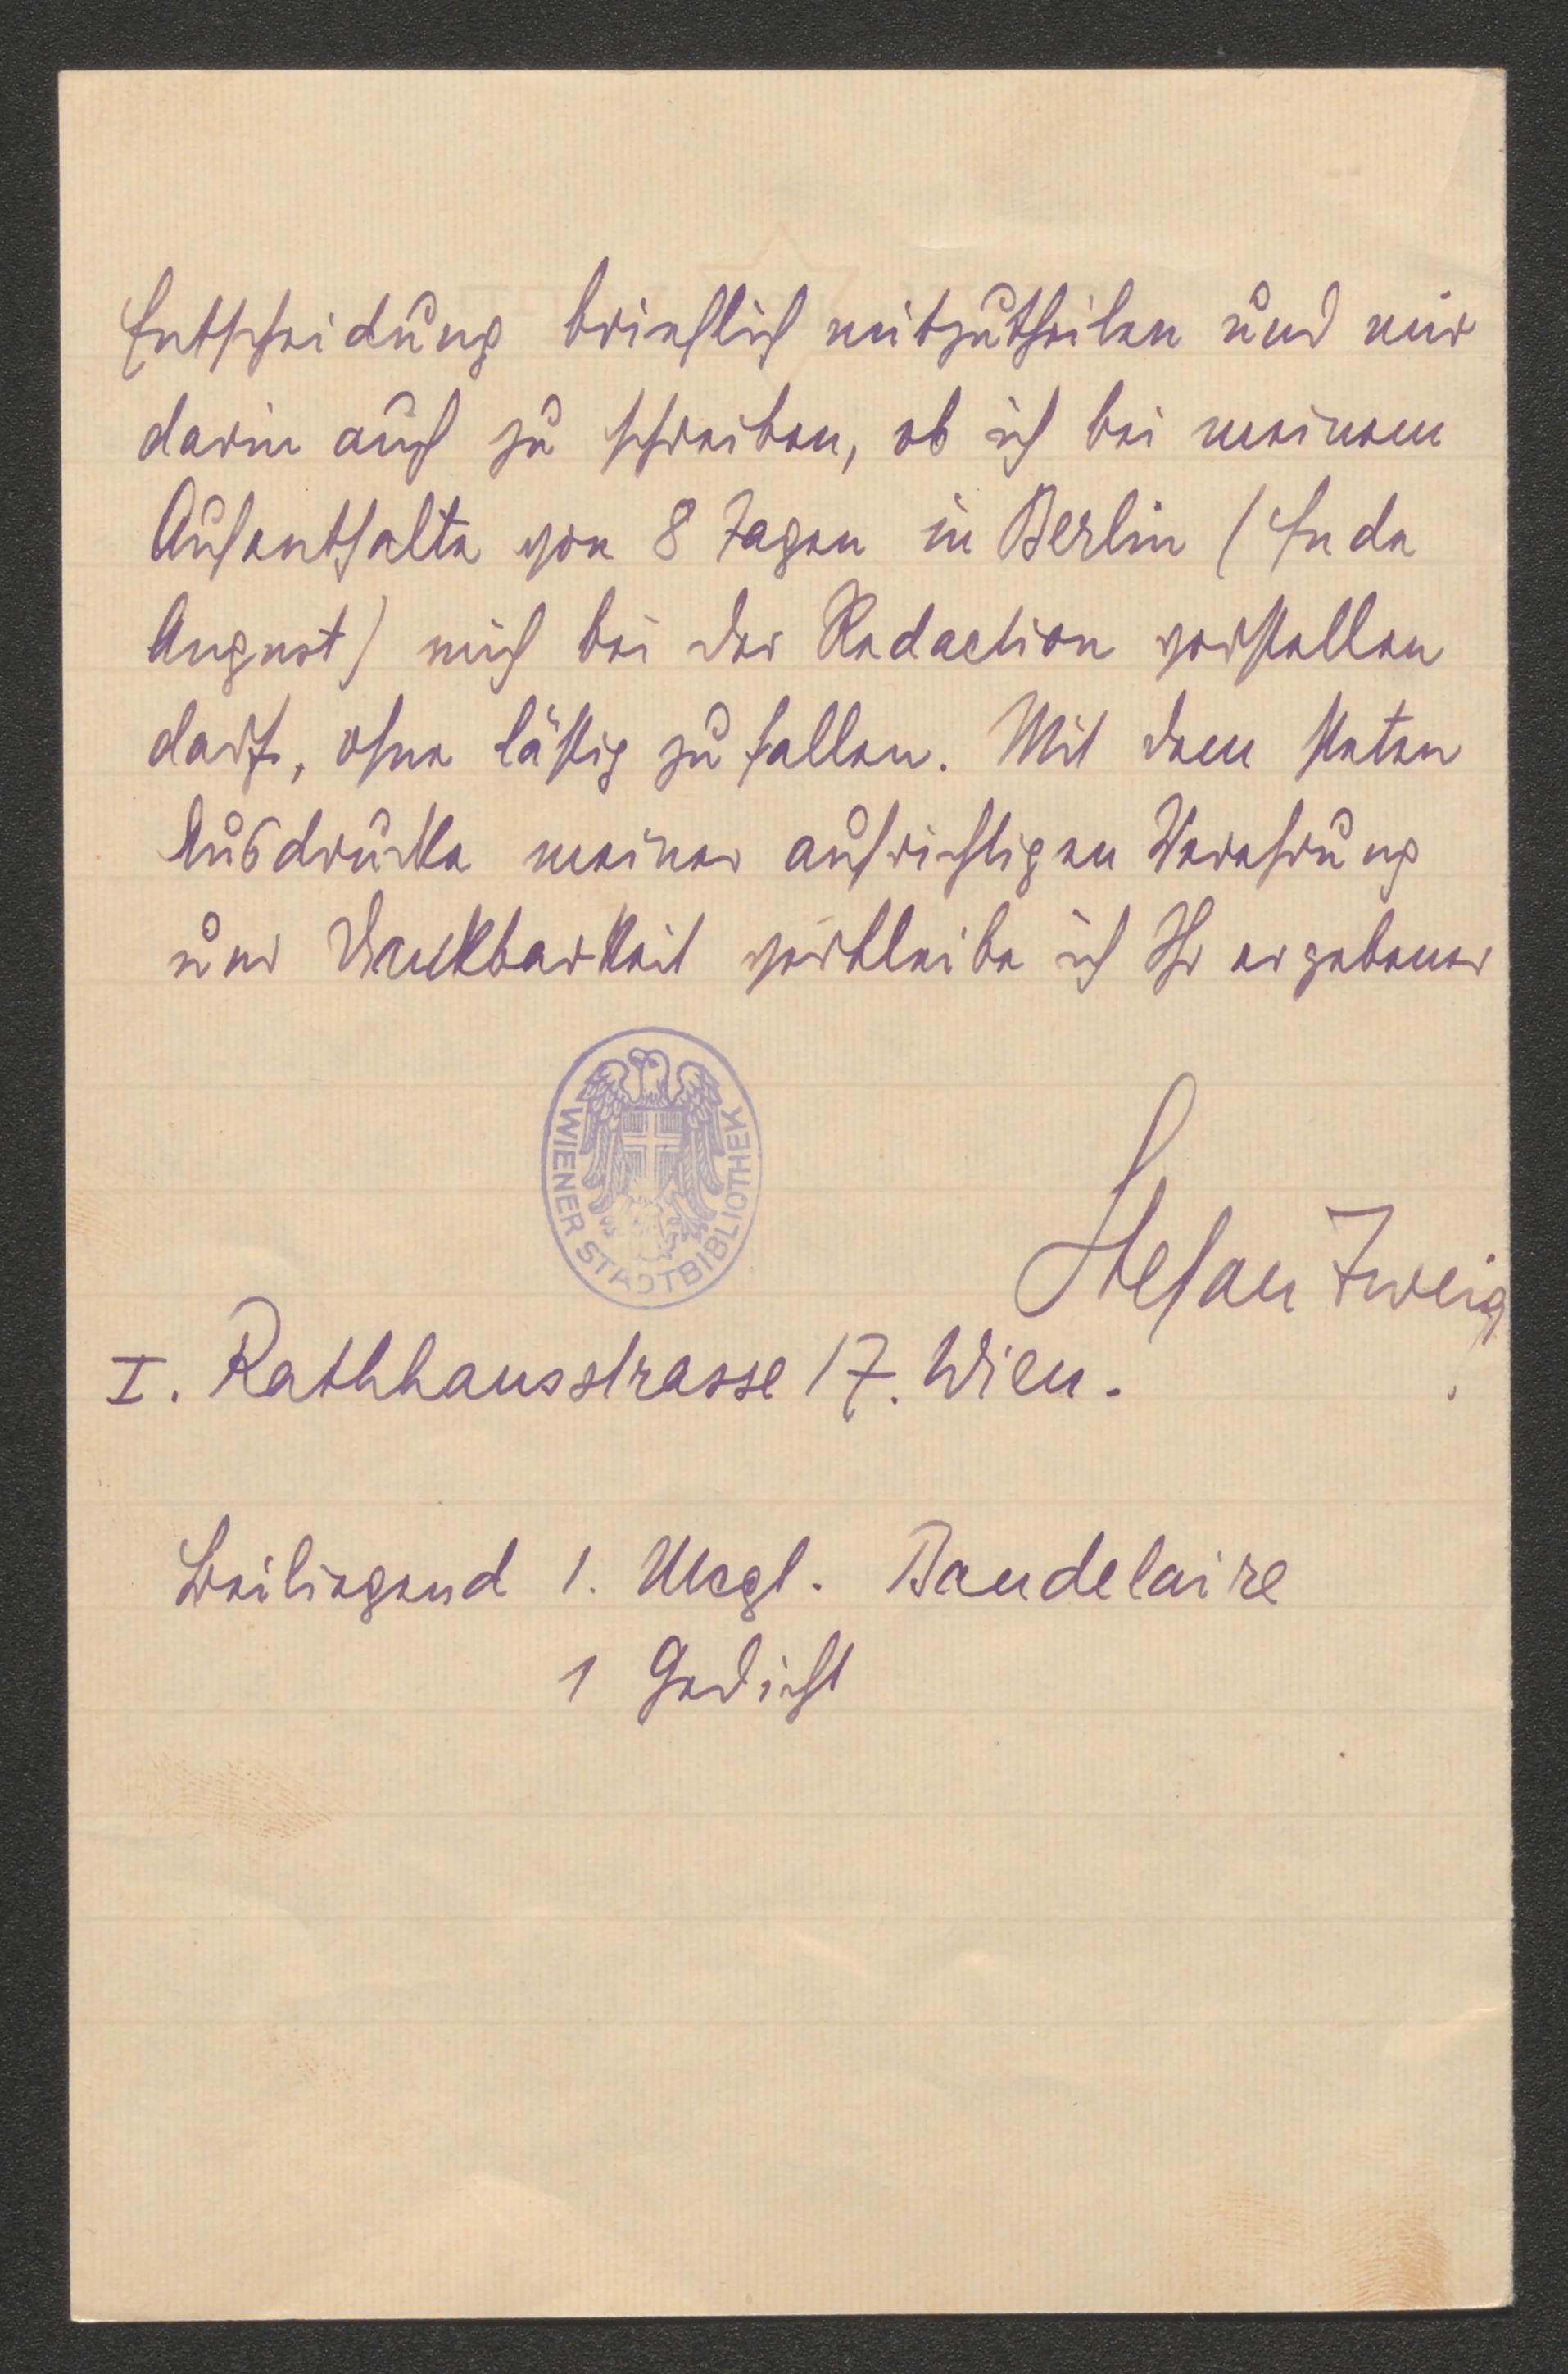 Entscheidung brieflich mitzutheilen und mir
darin auch zu schreiben, ob ich bei meinem
Aufenthalte von 8 Tagen in Berlin (Ende
August) mich bei der Redaction vorstellen
darf, ohne lästig zu fallen. Mit dem steten
Ausdrucke meiner aufrichtigen Verehrung
und Dankbarkeit verbleibe ich Ihr ergebener
WIENER STADTBIBLIOTHEK
Stefan Zweig
I. Rathhausstrasse 17. Wien.
Beiliegend 1. Uebgl. Baudelaire
1 Gedicht